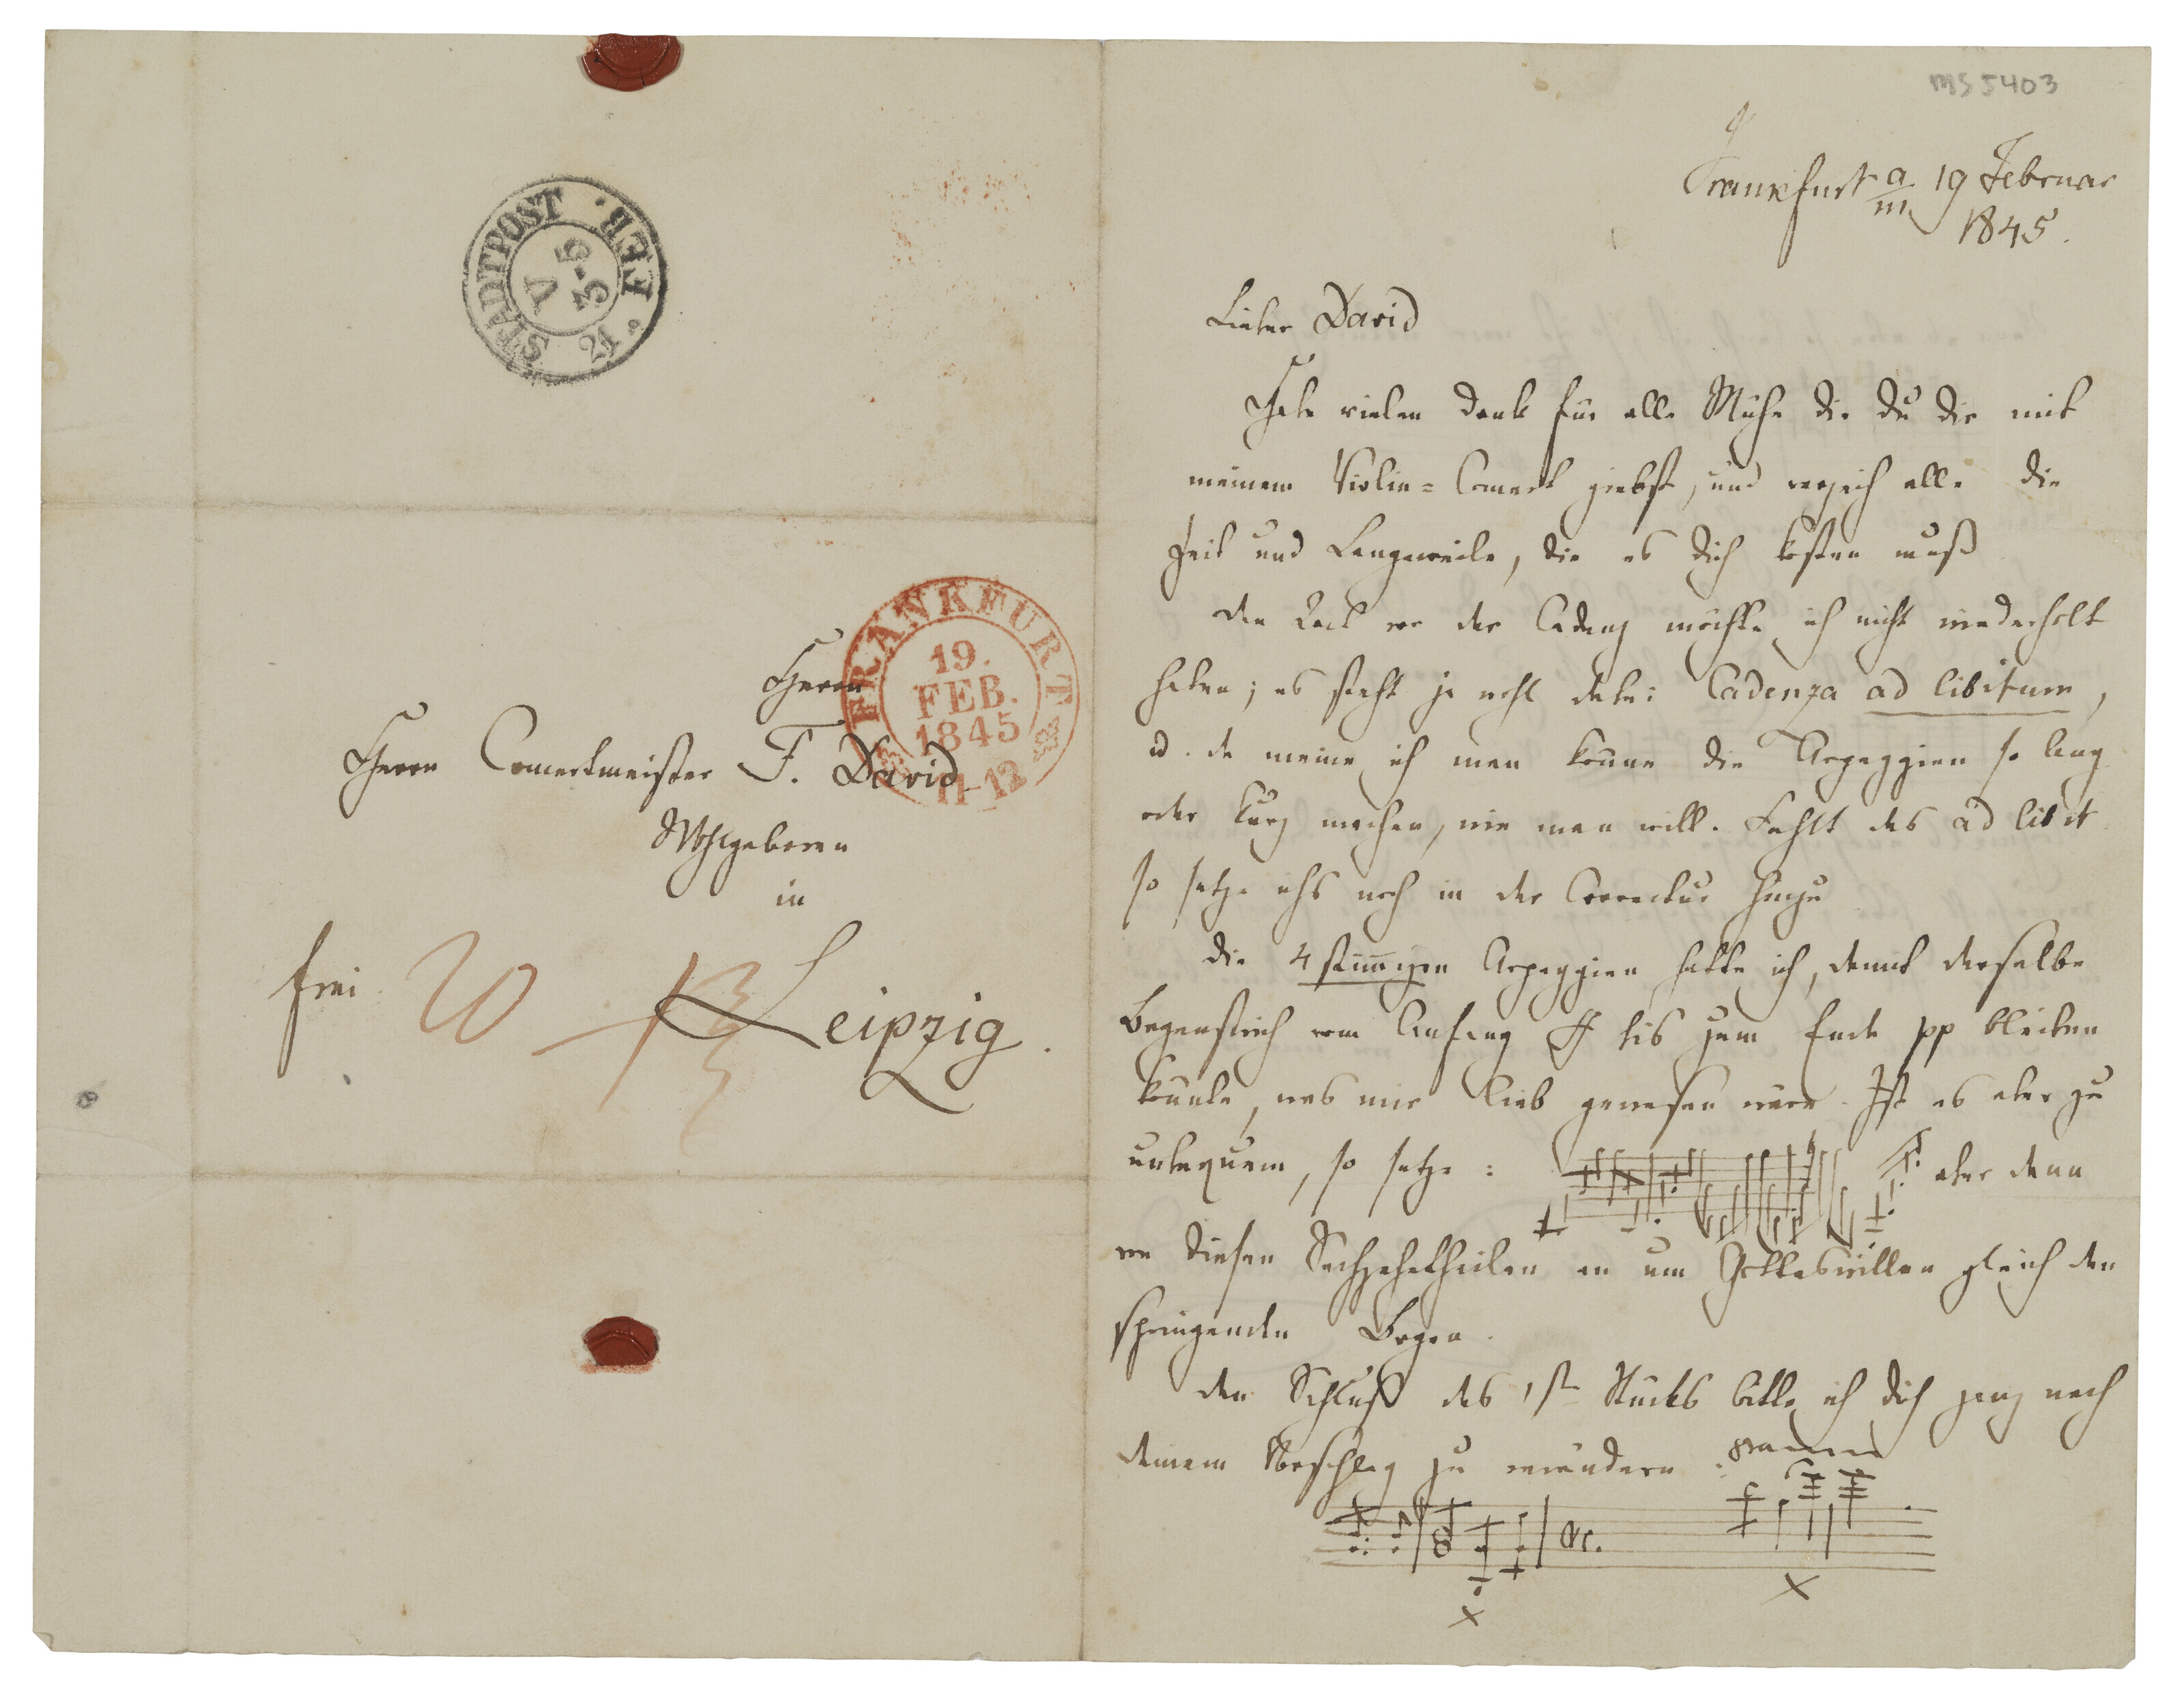 STADTPOST
21. FEB.
V
3-5
FRANKFURT
19.
FEB.
1845
11-12
Herrn
Herrn Concertmeister F. David
Wohlgeboren
in
frei Leipzig.
MS 5403
Frankfurt a/m 19 Februar
1845.
Lieber David
Habe vielen Dank für alle Mühe die du dir mit
meinem Violin=Concert giebst, und verzeih alle die
Zeit und Langeweile, die es dich kosten muß
Den Tact vor der Cadenz möchte ich nicht wiederholt
haben; es steht ja wohl dabei Cadenza ad libitum,
u. da meine ich man könne die Arpeggien so lang
oder kurz machen, wie man will. Fehlt das ad libit
so setze ichs noch in der Correctur hinzu
Die 4 stimmigen Arpeggien hatte ich, damit derselbe
Bogenstrich vom Anfang ff bis zum Ende pp bleiben
könnte, was mir lieb gewesen wäre. Ist es aber zu
unbequem, so setze: aber dann
von diesen Sechzehntheilen an um Gotteswillen gleich den
springenden Bogen.
Den Schluß des 1st Stücks bitte ich dich ganz nach
deinem Vorschlag zu verändern.
8va
&c.
x x